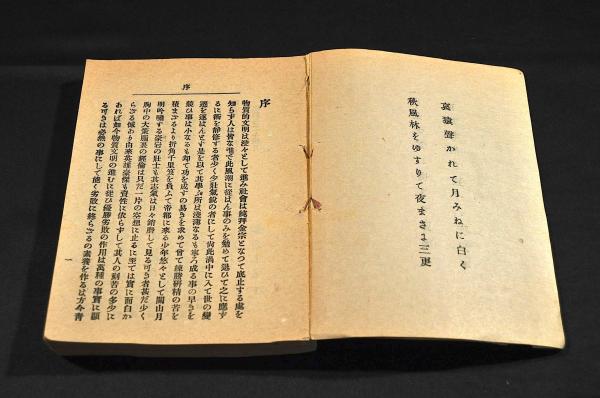 哀猿聲かれて月みねに白く
秋風林をゆすりて夜まさに三更
序
序
物質的文明は滔々として進み社會は純拜金宗となつて底止する處を
知らず人は皆な唯で此風潮に從はん事のみを勉めて退ひて之に應ず
るに術を静修する者少く少壯氣鋭の者にして尚此渦中に入て世の變
遷を逐はんとす是を以て其學ぶ所は淺薄なるも寧ろ成る事の早きを
競ひ事は小なるも却て功を成すの易きを求めて曾て練膽研精の苦を
積まざるより折角千里笈を負んで帝都に來る少年悠々として關山月
明吟嘯する豪宕の壯士も其志氣は日々銷磨して見る可き者甚だ少く
胸中の大策腦裏の經倫は只だ一片の空想に止るに至ては實に面白か
らざる憾あり由來英雄豪傑も資性に依らずして其人の刻苦の多少に
あれば如今物質文明の進むに從ひ優勝劣敗の作用は萬種の事實に顯
る可きは必然の事にして能く劣敗に終らざるの素養を作るは方今青
一